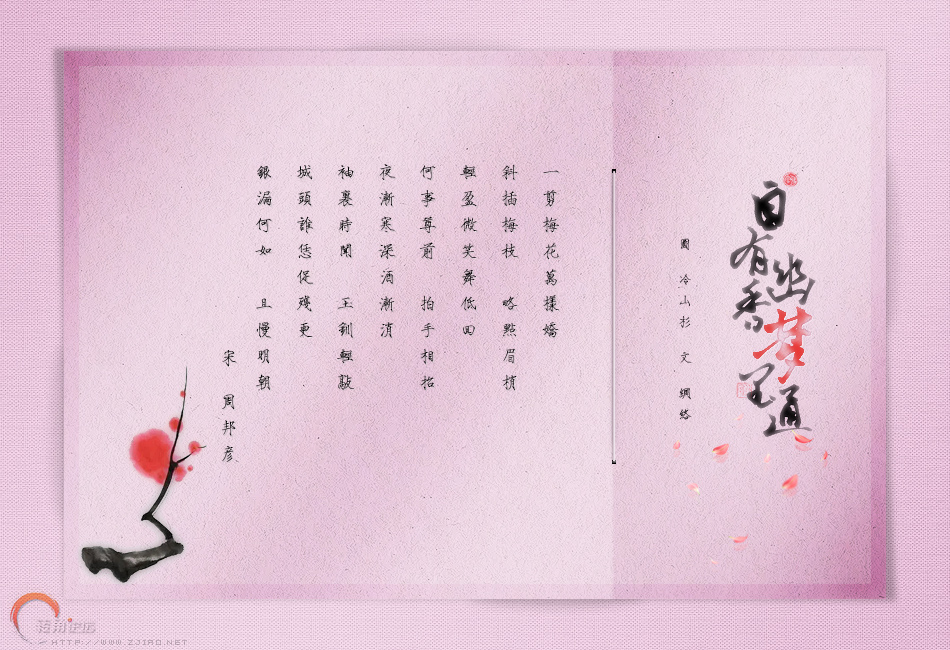 自有幽香梦里通
圖 冷山杉 文 網絡
一剪梅花萬樣嬌
斜插梅枝 略點眉梢
輕盈微笑舞低回
何事尊前 拍手相招
夜漸寒深酒漸消
袖裏時聞 玉釧輕敲
城頭誰恁促殘更
銀漏何如 且慢明朝
宋 周邦彦
转角论坛
HTTP://WWW.ZJIAO.NET